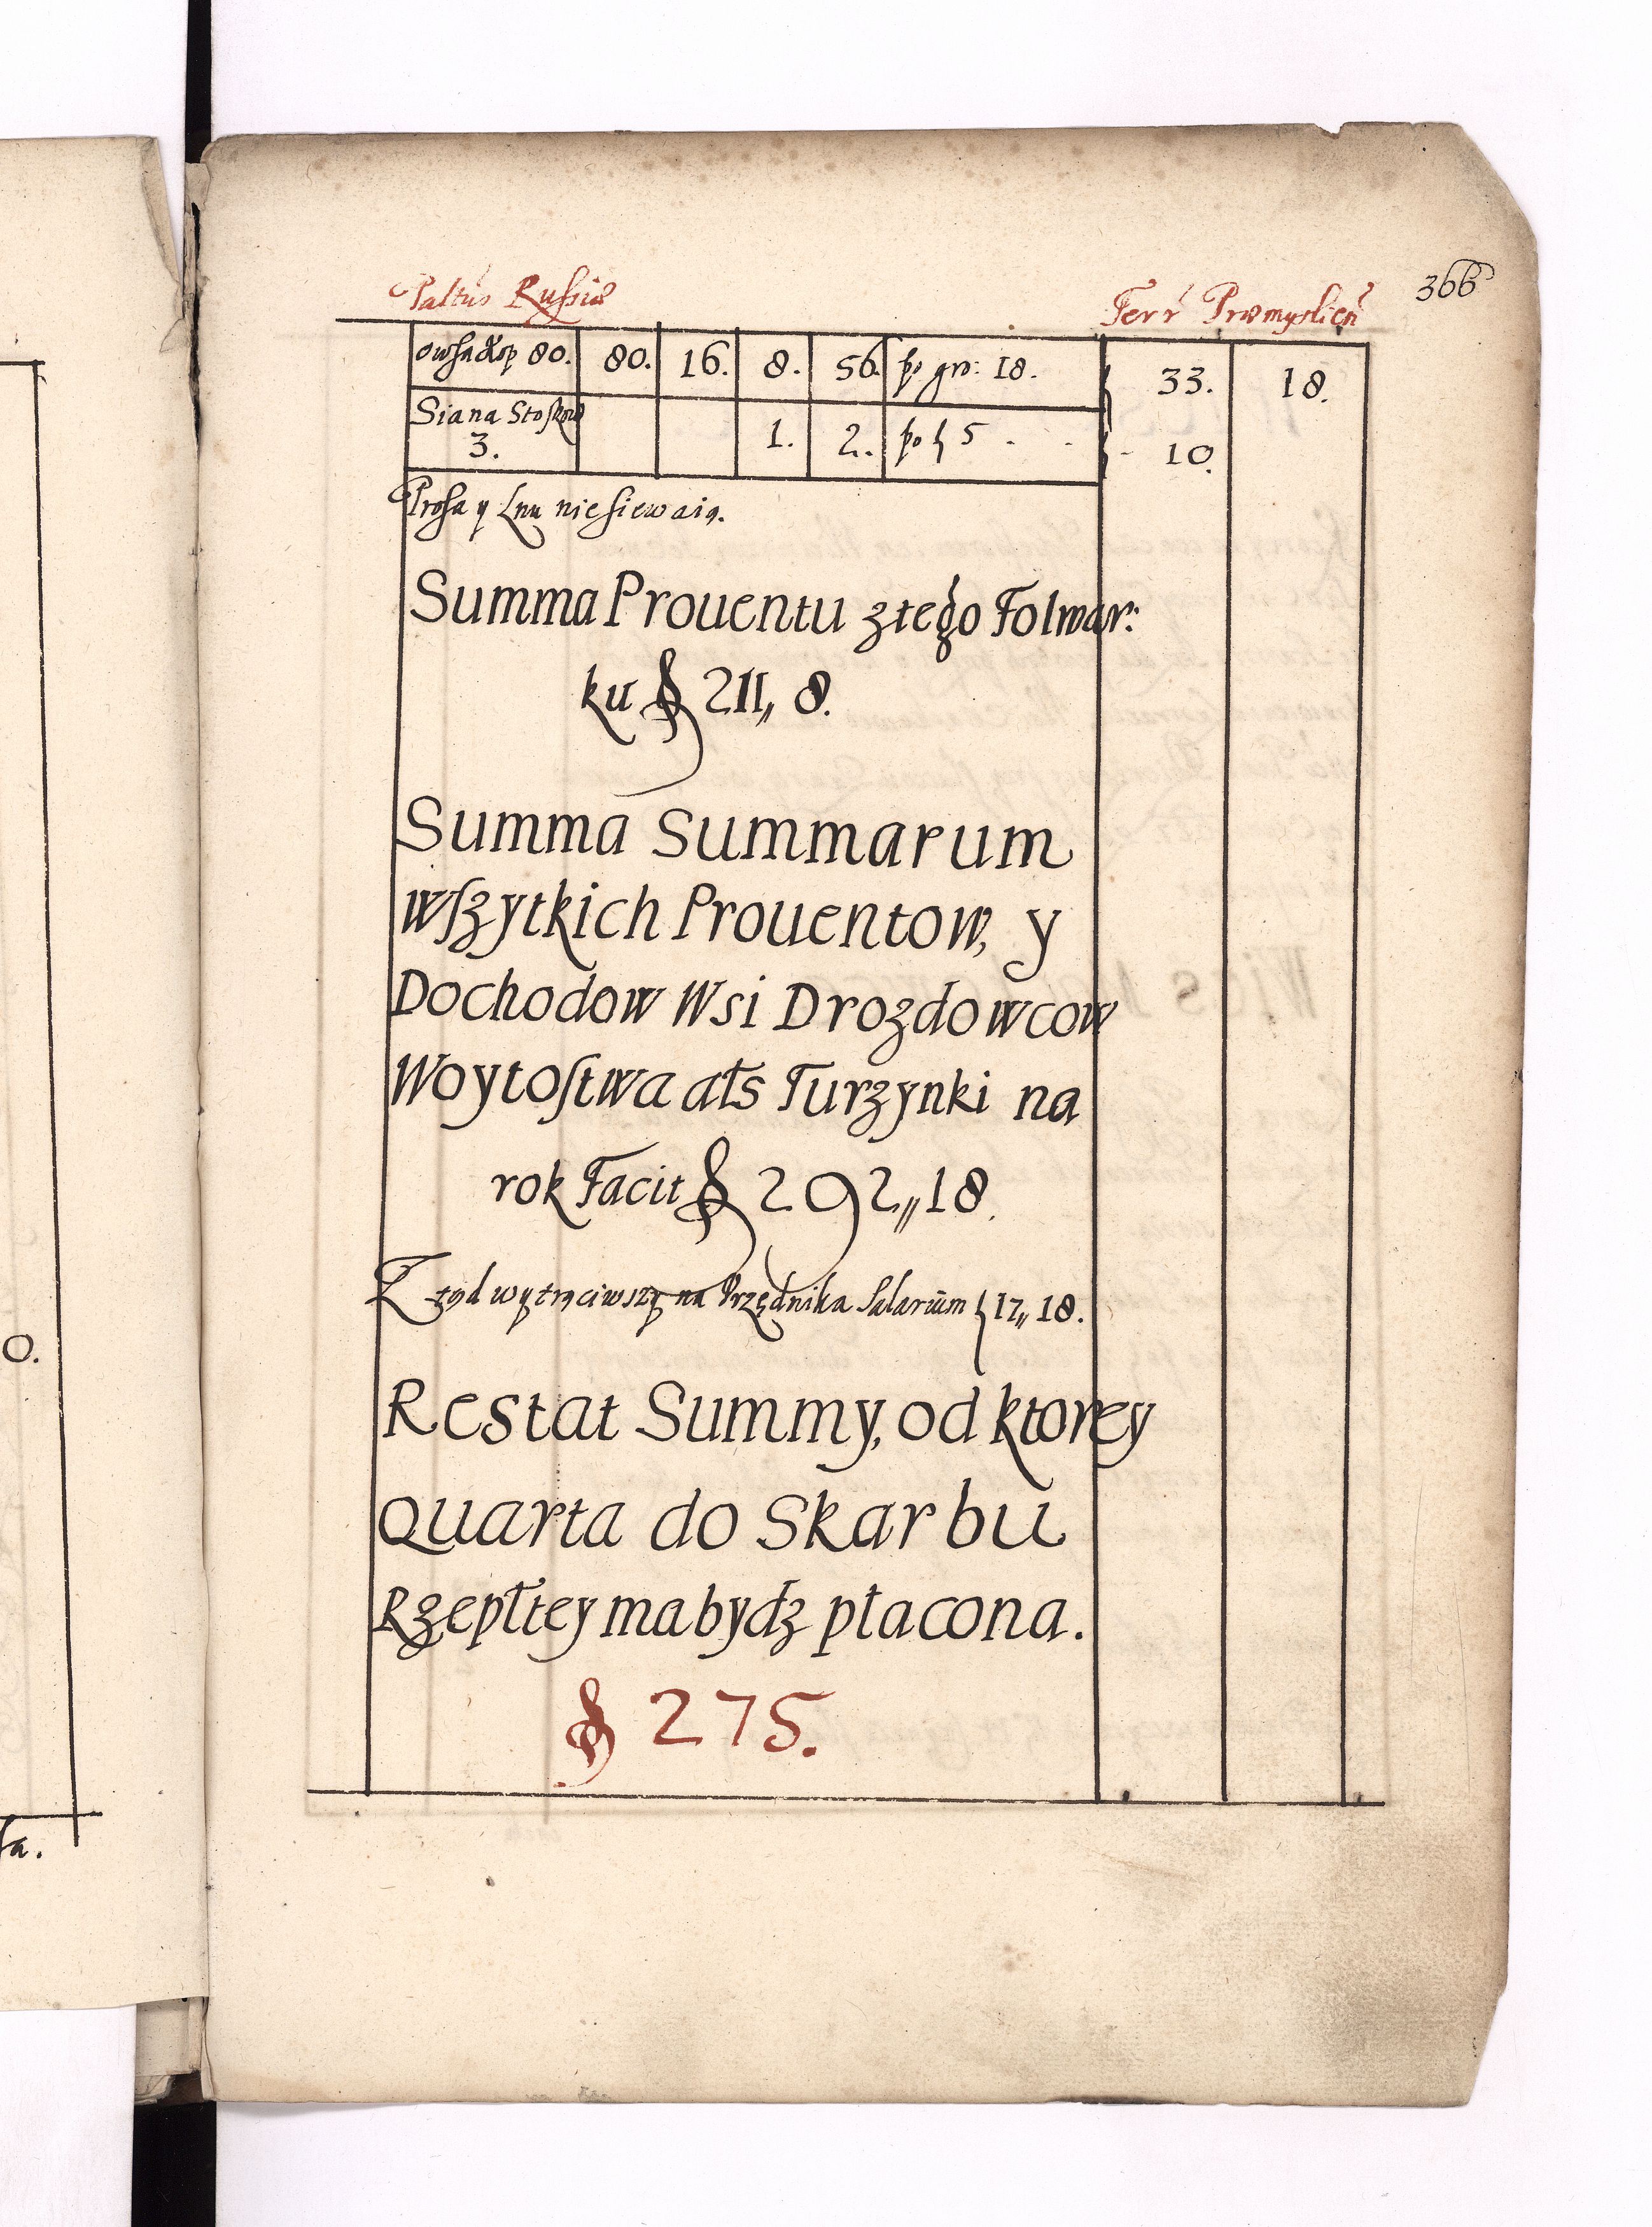 366
Paltûs Russiæ Terr Præmyslien
owsa kop 80. 80. 16. 8. 56. po gro: 18. 33. 18.
Siana Stosków
3. 1. 2. po ʄ 5 - - - 10.
Prosa y Lnu nie siewaią.
Summa Prouentu z tego Folwar:
ku ʄ 211,, 8.
Summa Summarum
wszytkich Prouentow, y
Dochodow Wsi Drozdowcow
Woytostwa ałs Turzynki na
rok Facit ʄ 292,,18.
Z tąd wytrąciwszy na Vrzędnika Salarium ʄ 17,, 18.
Restat Summy, od ktorey
Quarta do Skarbu
Rzepłtey ma bydz płacona.
ʄ 275.
0.
sa.